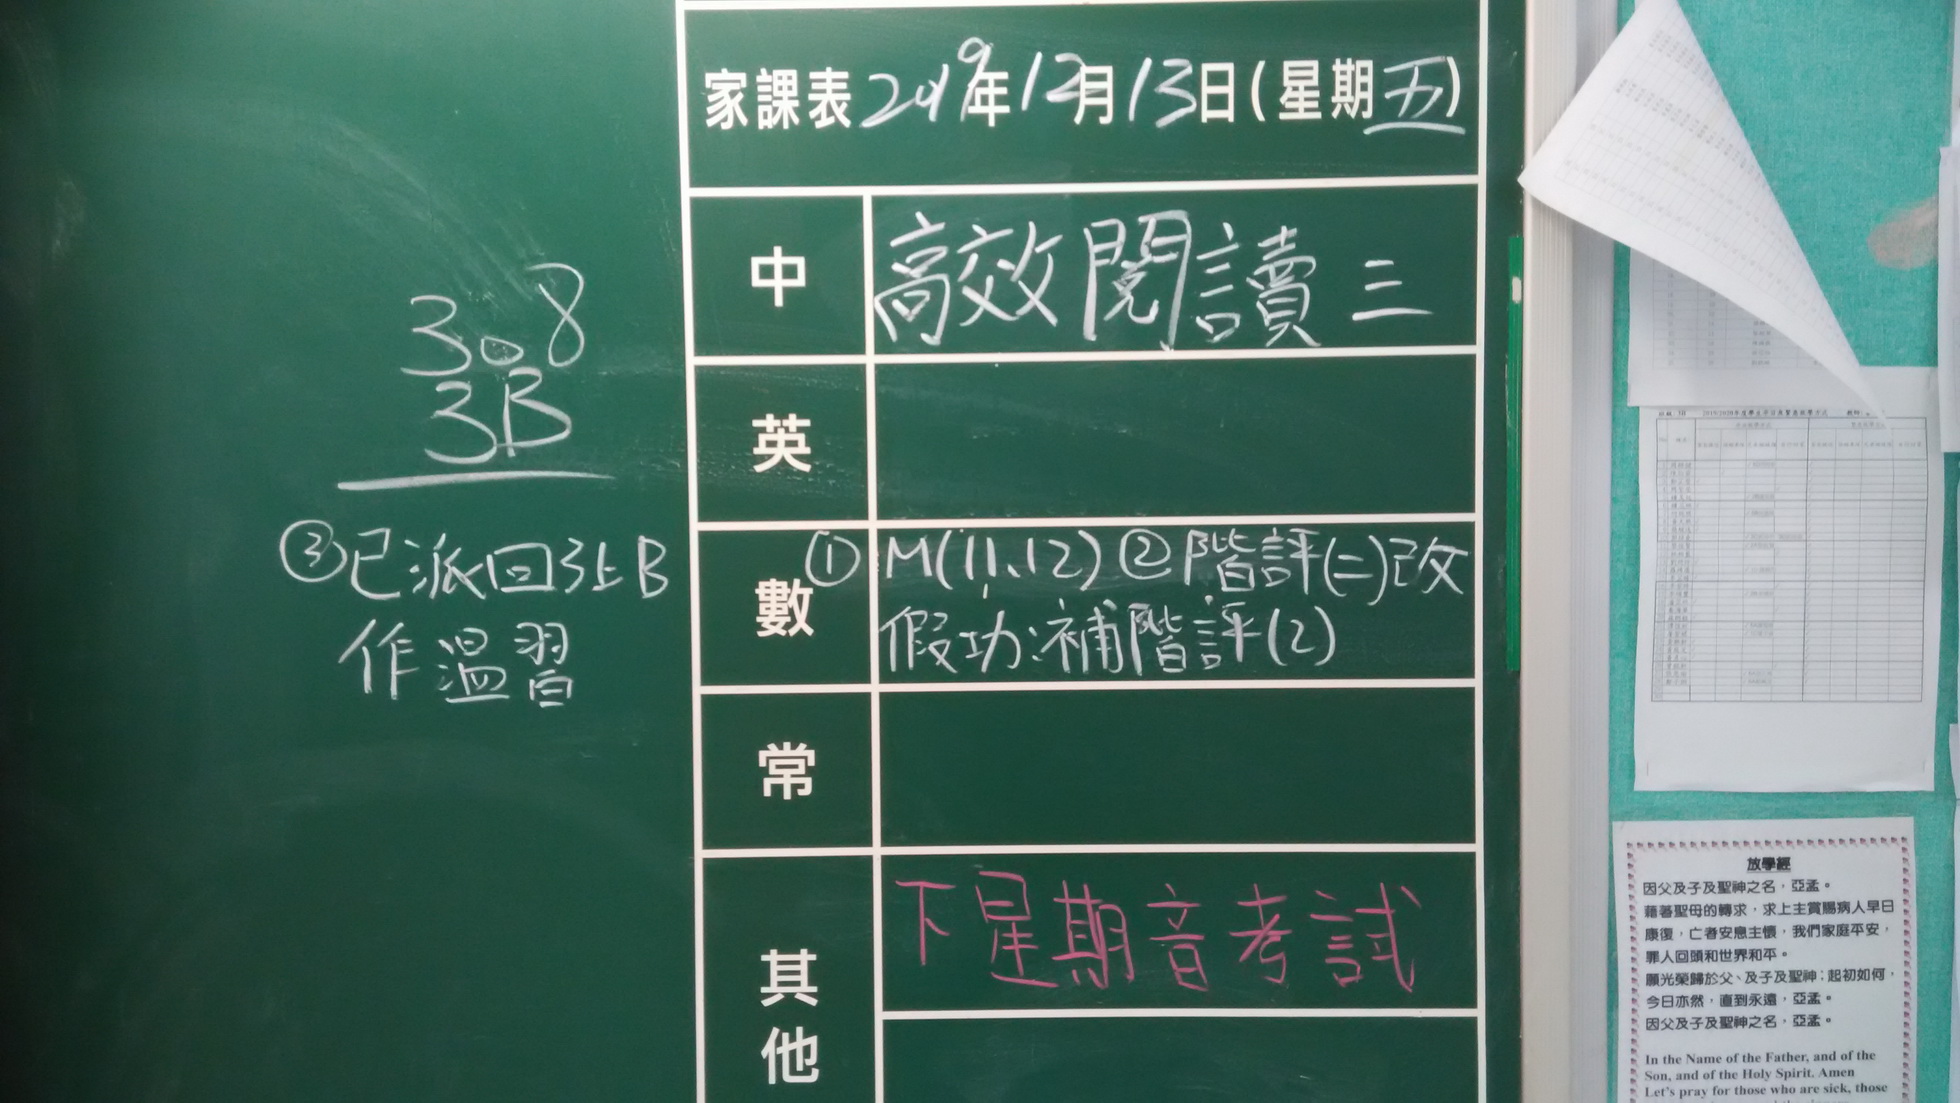 家課表 2019年12月13日(星期五)
中 高效閱讀三
英
數 ① M(11、12) ② 階評(二)改
假功:補階評(2)
常
其他 下星期音考試
3.8
3B
③已派回3上B
作溫習
放學經
因父及子及聖神之名，亞孟。
藉著聖母的轉求，求上主賞賜病人早日
康復，亡者安息主懷，我們家庭平安，
罪人回頭和世界和平。
願光榮歸於父、及子及聖神；起初如何，
今日亦然，直到永遠，亞孟。
因父及子及聖神之名，亞孟。
In the Name of the Father, and of the
Son, and of the Holy Spirit. Amen
Let's pray for those who are sick, those